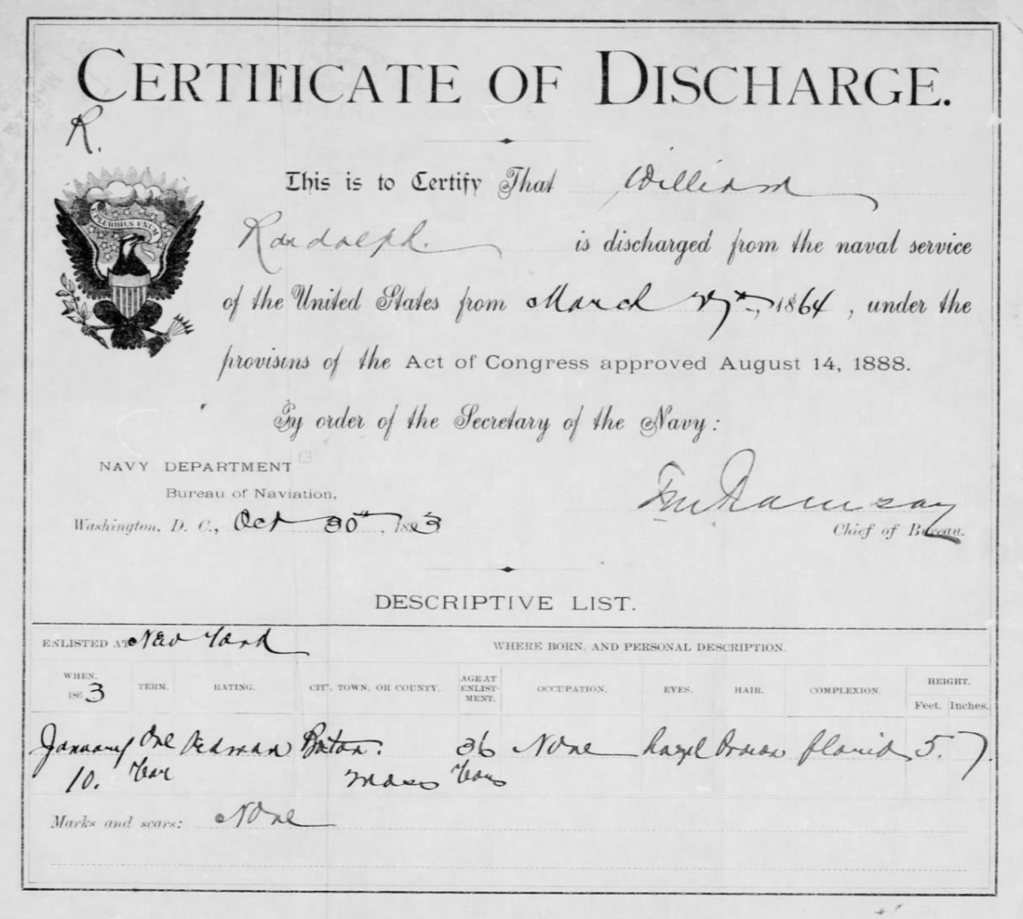 CERTIFICATE OF DISCHARGE.
R.
This is to Certify That William
Randolph is discharged from the naval service
of the United States from March 1864, under the
provisins of the Act of Congress approved August 14, 1888.
By order of the Secretary of the Navy:
E PLURIBUS UNUM
NAVY DEPARTMENT
Bureau of Naviation,
Washington, D. C., Oct 30th, 1893
F M Ramsay
Chief of Bureau.
DESCRIPTIVE LIST.
ENLISTED AT New York WHERE BORN, AND PERSONAL DESCRIPTION.
WHEN. 1863 TERM. RATING. CITY, TOWN, OR COUNTY. AGE AT ENLISTMENT. OCCUPATION. EYES. HAIR. COMPLEXION. HEIGHT. Feet. Inches.
January One Boston 36 None hazel Brown florid 5. 7.
10. Year Mass Years
Marks and scars: None